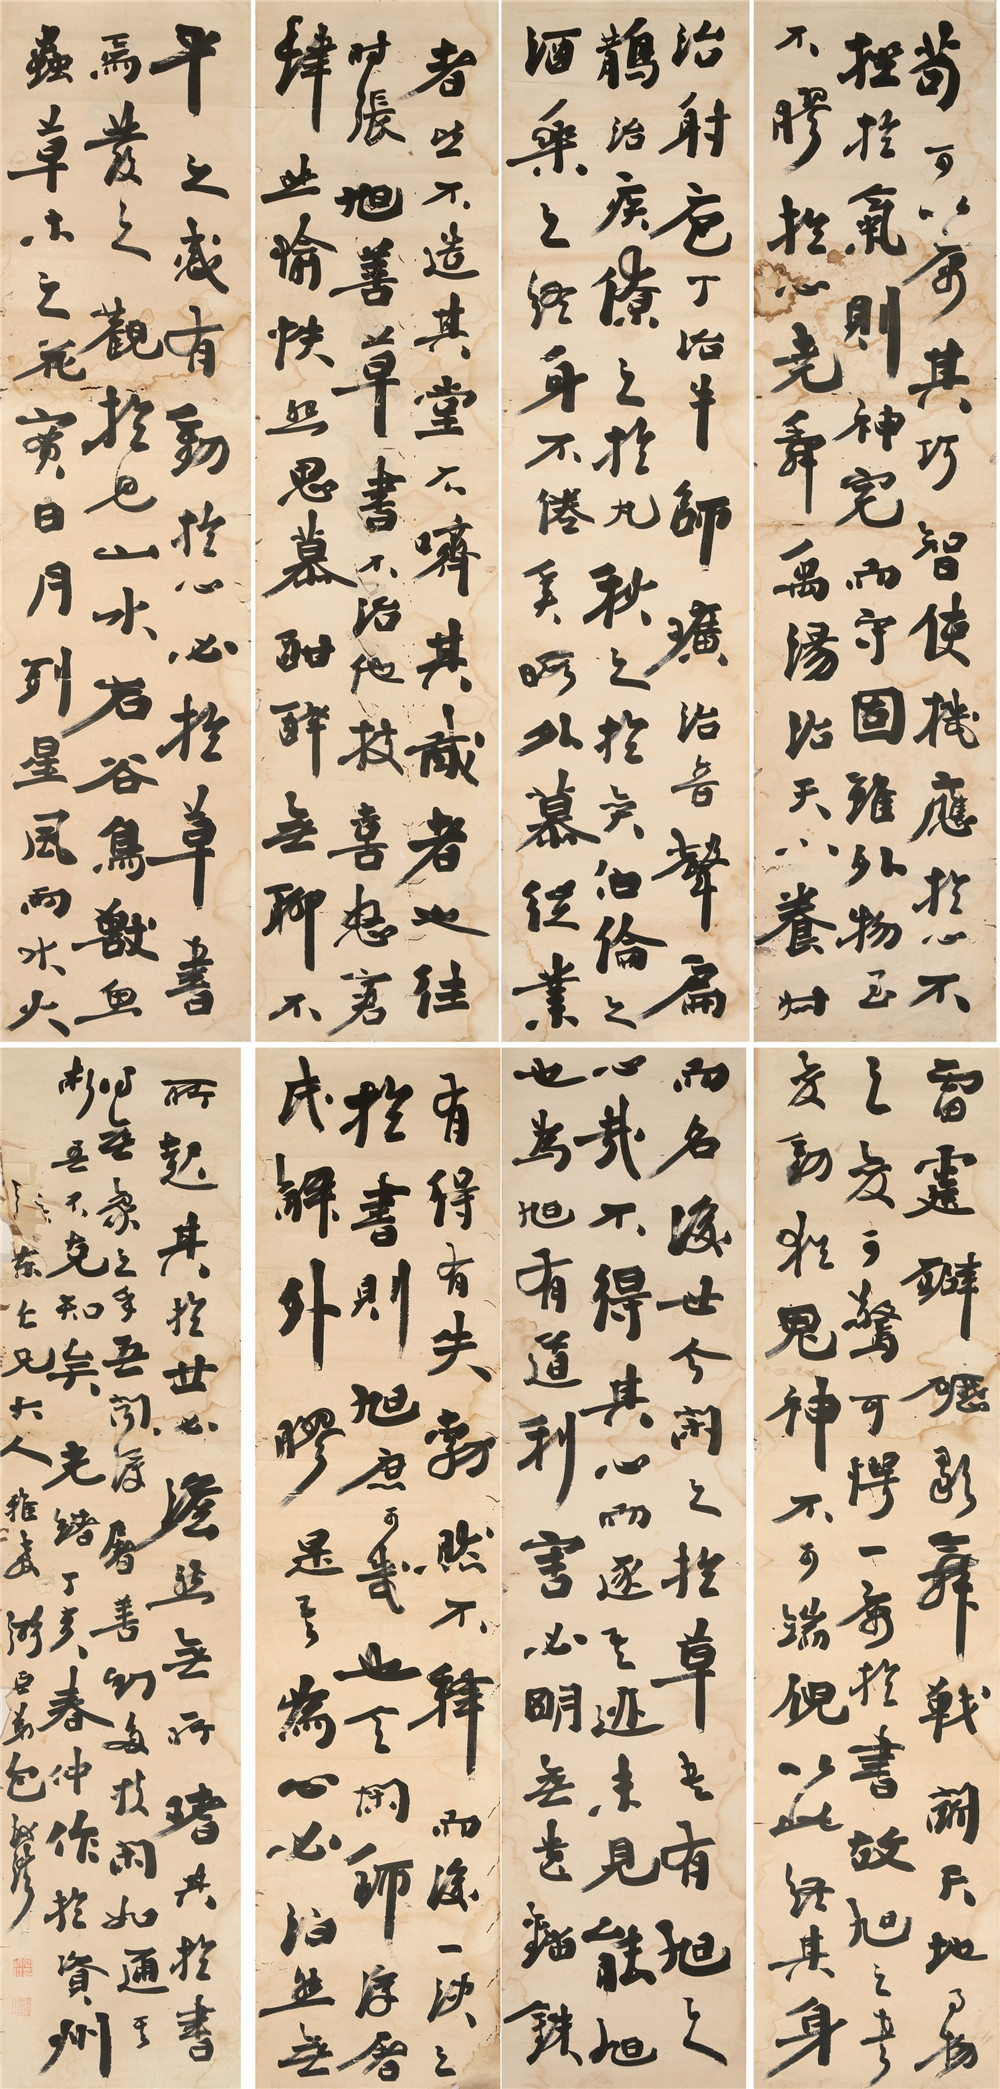 苟可以寓其巧智使機應於心不
挫於氣則神完而守固雖外物至
不膠於心堯舜禹湯治天下養叔
治射庖丁治牛師曠治音聲扁
鵲治疾僚之於丸秋之於奕伯倫之
酒樂之終身不倦奚暇外慕徙業
者皆不造其堂不嚌其胾者也往
時張旭善草書不治他技喜怒窘
愉佚思慕酣醉無聊不
平之感有動於心必於草書
焉發之觀於見山水岩谷鳥獸魚
蟲草木之花實日月列星風雨水火
雷霆霹靂歌舞戰鬭天地事物
之變可驚可愕一寓於書故旭之書
變動猶鬼神不可端倪以此終其身
而名後世今閑之於草書有旭之
心哉不得其心而逐其迹未見能旭
也為旭有道利害必明無遺錙銖
有得有失勃然不釋而後一決之
於書則旭庶可幾也今閑師浮屠
氏解外膠是其為心必泊然無
所起其於世必澹然無所嗜其於書
得無象之乎吾聞浮屠善幻多技閑如通其
術吾不克知矣 光緒丁亥春仲作於資州
仁兄大人雅教 弟包